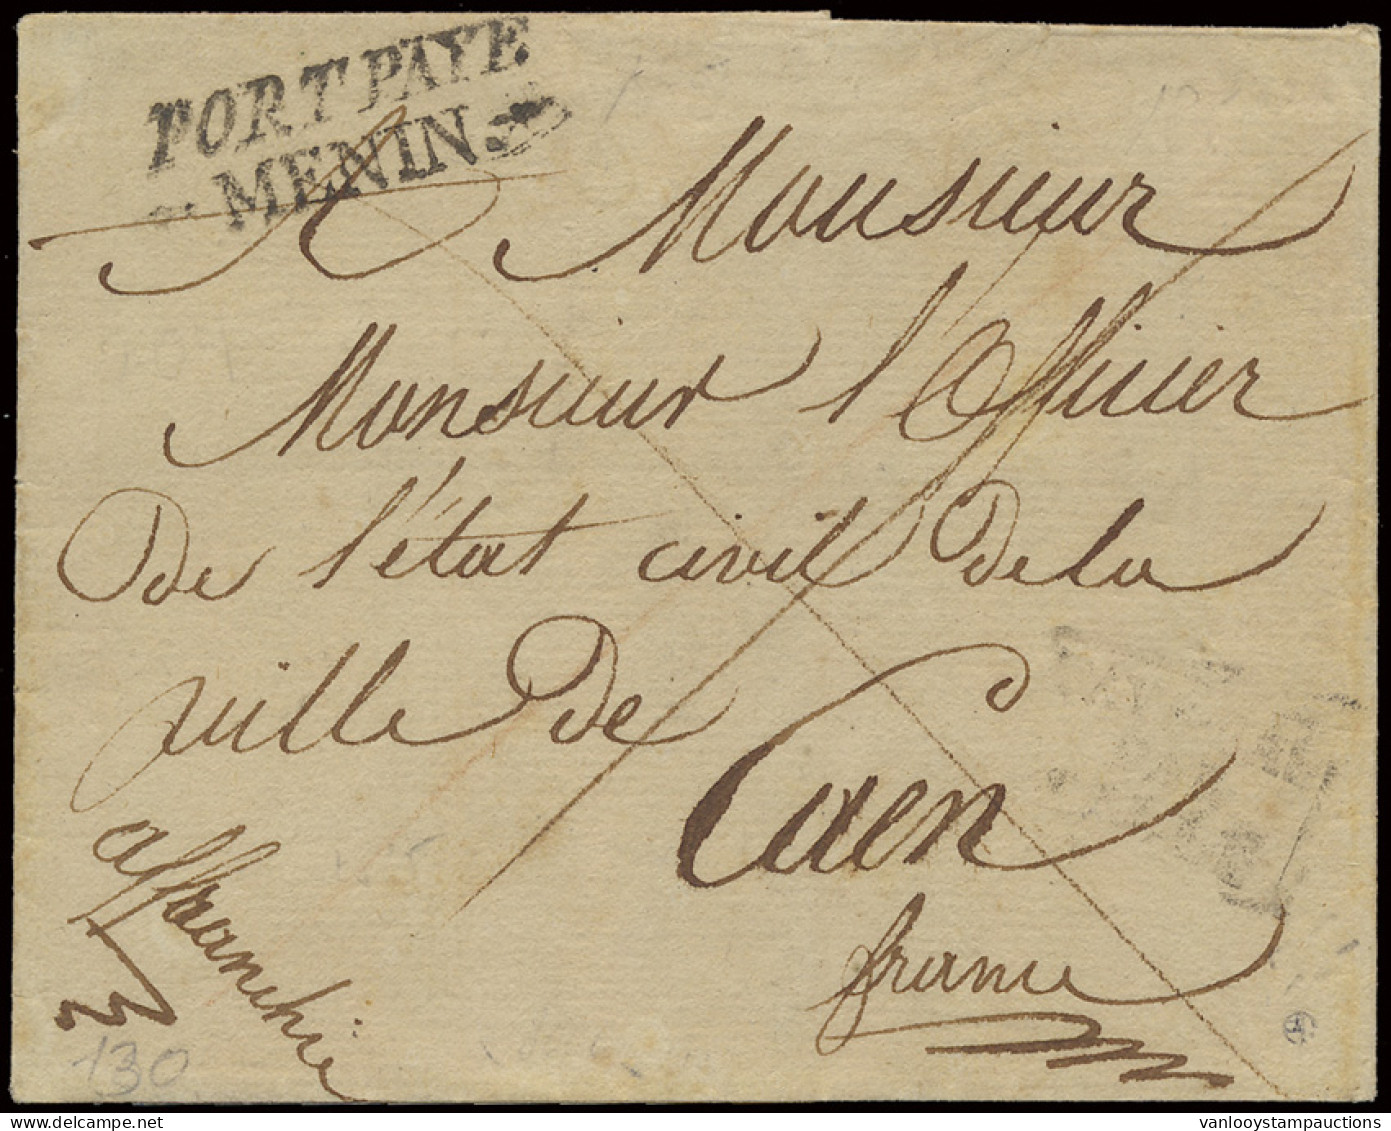 PORT PAYE
MENIN
A Monsieur
Monsieur l'officier
De l'état civil De la
ville De
Caen
france
affranchie
130
vanlooystampauctions